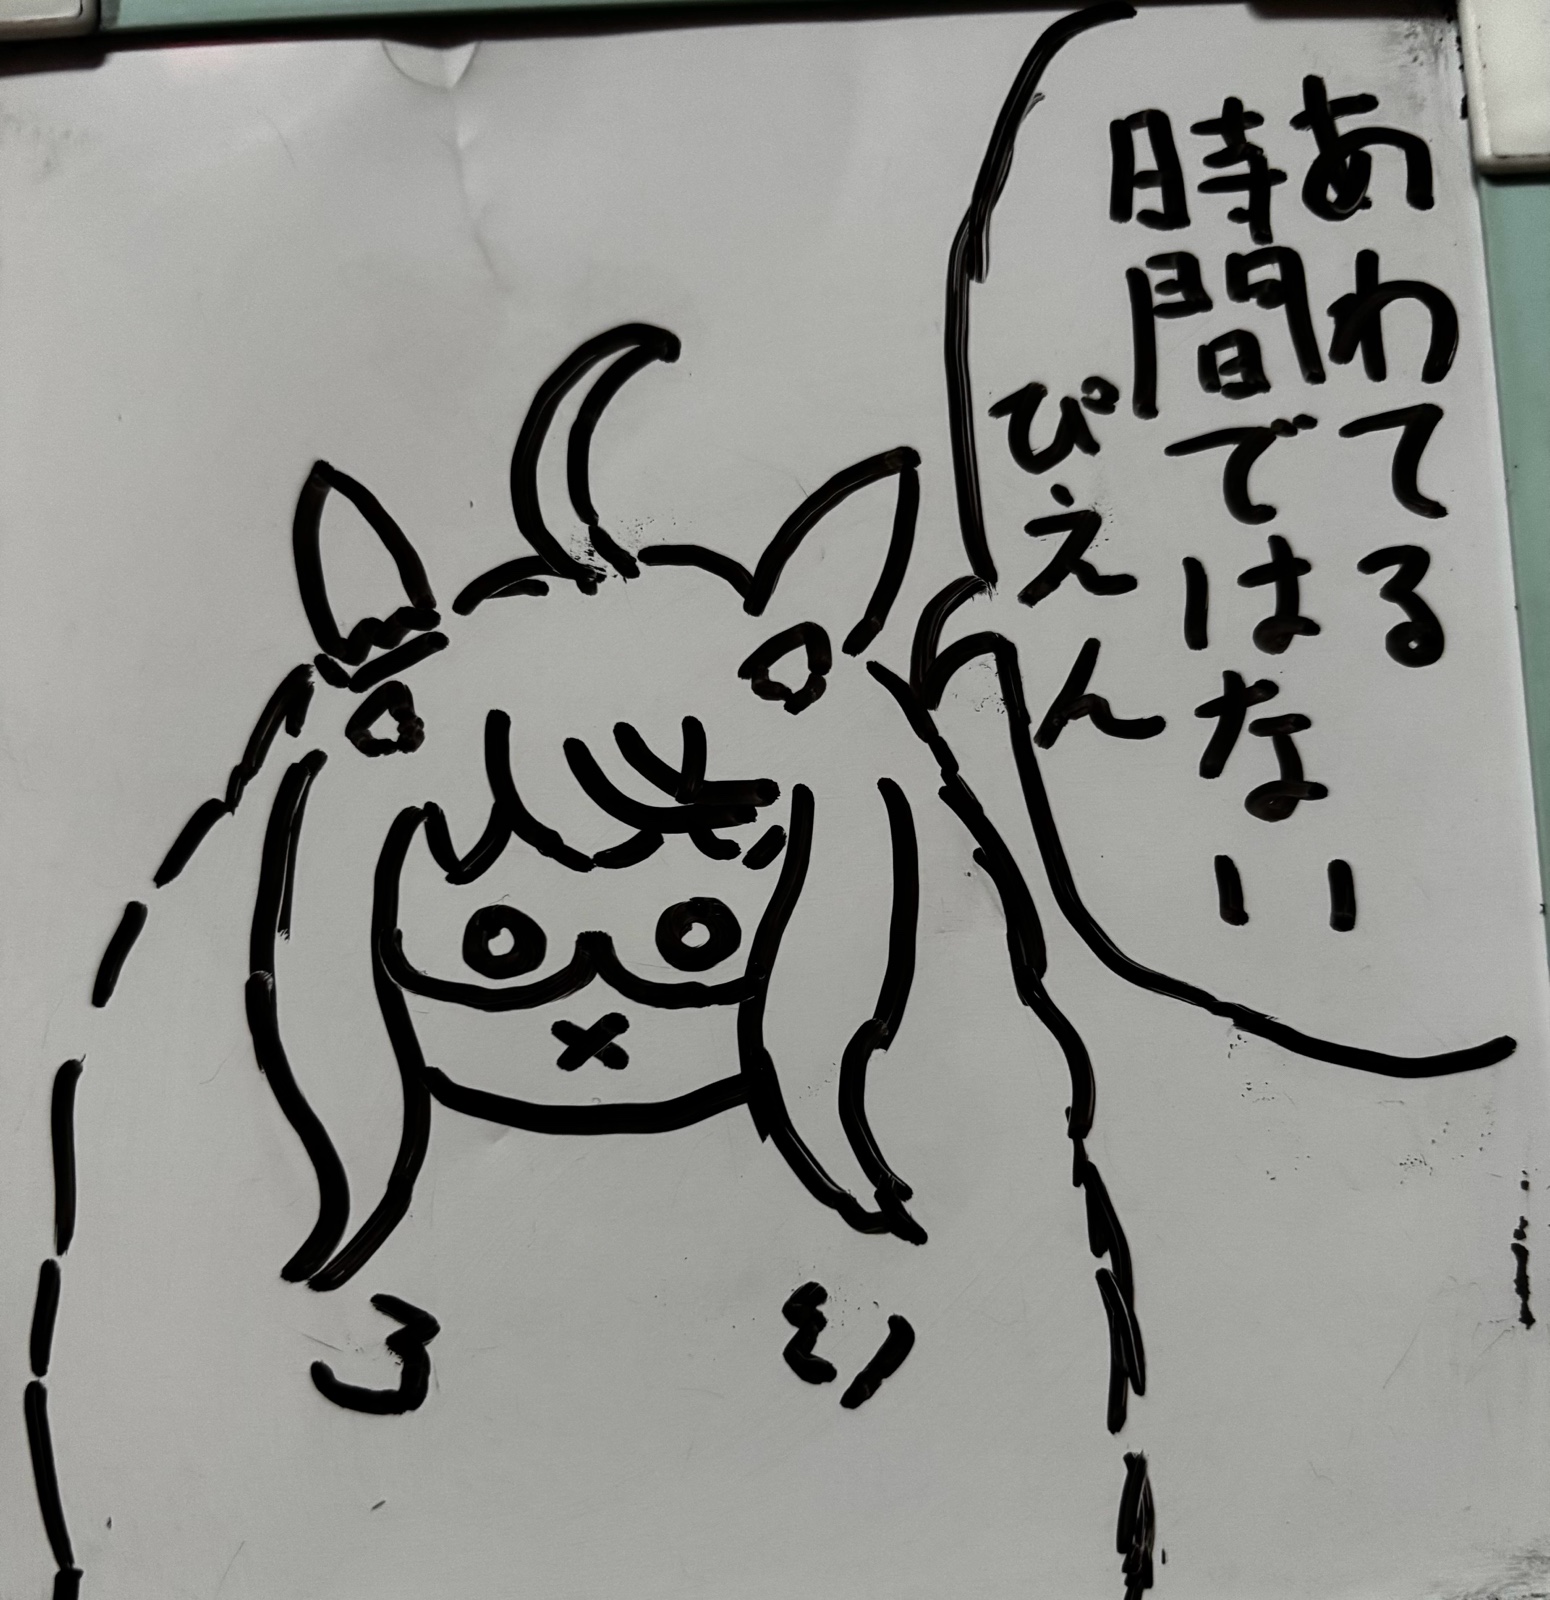 あわてる
時間ではない
ぴえん